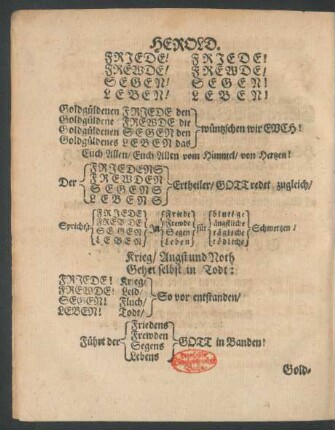 HEROLD.
FRIEDE/ FRIEDE!
FREWDE/ FREWDE!
SEGEN/ SEGEN!
LEBEN/ LEBEN!
Goldgüldenen FRIEDE den
Goldgüldene FREWDE die
Goldgüldenen SEGEN den
Goldgüldenes LEBEN das
wüntzschen wir EVCH!
Euch Allen/ Euch Allen vom Himmel/ von Hertzen!
Der
FRIEDENS
FREWDEN
SEGENS
LEBENS
Ertheiler/ GOTT redet zugleich/
Spricht
FRIEDE
FREWDE
SEGEN
LEBEN
Friede
Frewde
Segen
Leben
für
blutige
ängstliche
klägliche
tödliche
Schmertzen/
Krieg/ Angst und Noth
Gehet selbst in Todt:
FRIEDE! Krieg/
FREWDE! Leid/
SEGEN! Fluch/
LEBEN! Todt/
So vor entstanden/
Führt der
Friedens
Frewden
Segens
Lebens
GOTT in Banden!
Gold-